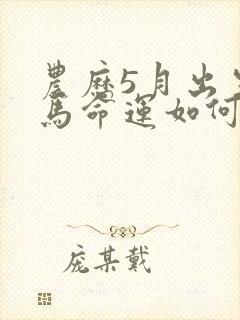 農歷5月出生
馬命運如何
庞某戴